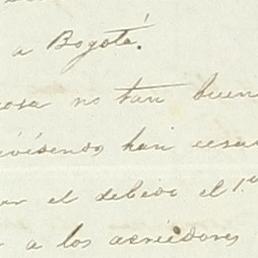 a Bogotá.
osa no tan buen
ividendo, han cesa
ar el debido el 1.º
r a los acreedores